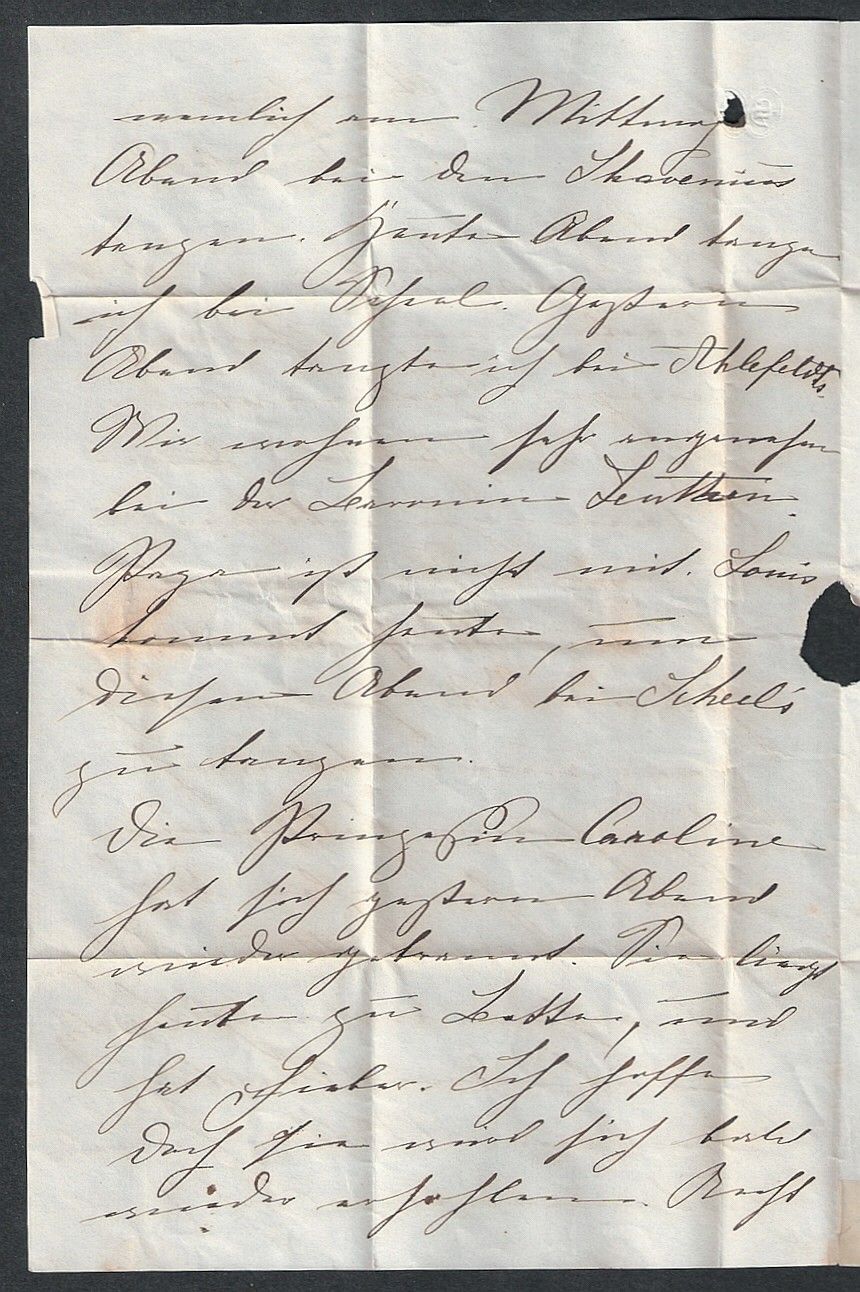 nemlich am Mittwoch
Abend bei den Skavenius
tanzen. Heute Abend tanze
ich bei Scheel. Gestern
Abend tanzte ich bei Ahlefeldts.
Wir wohnen sehr angenehm
bei der Baronin
Papa ist nicht mit. Louis
kommt heute, um
diesen Abend bei Scheel's
zu tanzen.
Die Prinzeßin Caroline
hat sich gestern Abend
wieder gebrannt. Sie liegt
heute zu Bette, und
hat Fieber. Ich hoffe
doch sie wird sich bald
wieder erhohlen. Recht